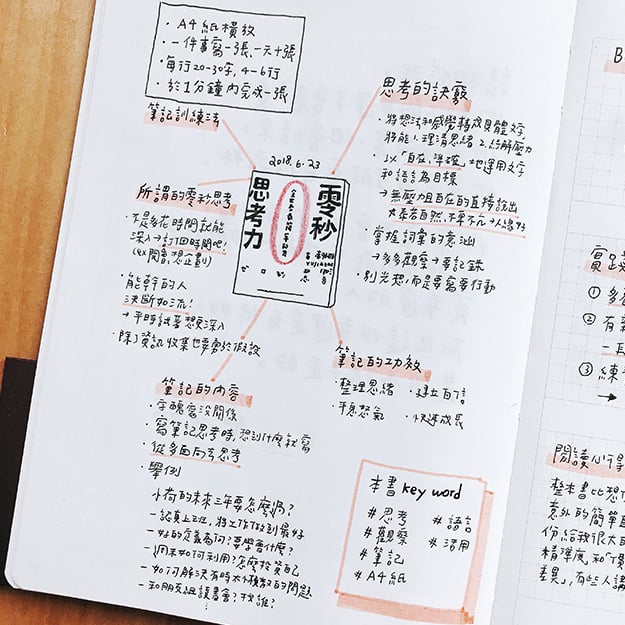 ・A4紙橫放
・一件事寫一張、一天十張
・每行20-30字, 4-6行
・於1分鐘內完成一張
筆記訓練法
2018.6.23
零秒
思考力
所謂的零秒思考
・不是多花時間就能
深入→訂個時間吧!
(ex開會,想企劃)
・能幹的人
決斷如流!
→平時試著想深入
・除了資訊收集也要勇於假設
思考的訣竅
・將想法和感覺轉成具體文字
將能1.理清思緒 2.紓解壓力
・以「自在、準確」地運用文字
和語言為目標
→無壓力且自在的直接說出
・掌握詞彙的意涵
→多多觀察→要記錄
・別光想,而是要寫要行動
筆記的功效
・整理思緒
・建立自信
・平息怒氣
・快速成長
筆記的內容
・字醜寫沒關係
・寫筆記思考時,想到什麼就寫
・從多面向去思考
・舉例
小荷的未來三年要怎麼過?
—認真上班,將工作做到最好
—好的定義為何?要學會什麼?
—週末如何利用?怎麼找自己
—如何解決有時太小積極的問題
—和朋友組讀書會?找誰?
本書 key word
#思考
#語言
#觀察
#活用
#筆記
#A4紙
B
實踐
① 多
② 有
一
③ 練
→
閱讀心得
整本書比想
意外的簡單
份給我很大
精準度,和「價
差異」,有些人